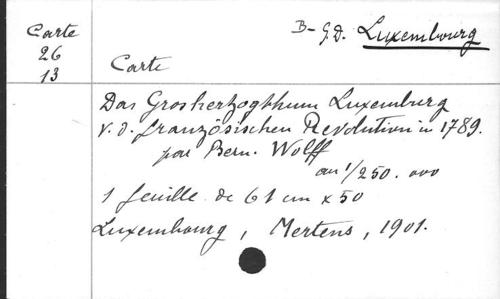 Carte
26
13
B- G.D. Luxembourg
Carte
Das Grosherzogthum Luxemburg
v. d. französischen Revolution in 1789.
par Bern. Wolff
au 1/250.000
1 feuille de 61 cm x 50
Luxembourg, Mertens, 1901.